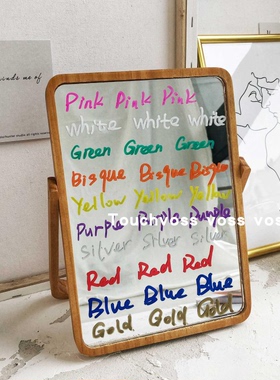 Pink Pink Pink
white white white
Green Green Green
Bisque Bisque Bisque
Yellow Yellow Yellow
Purple Purple Purple
Touchyloss voss vos
Silver Silver Silver
Red Red Red
Blue Blue Blue
Gold Gold Gold